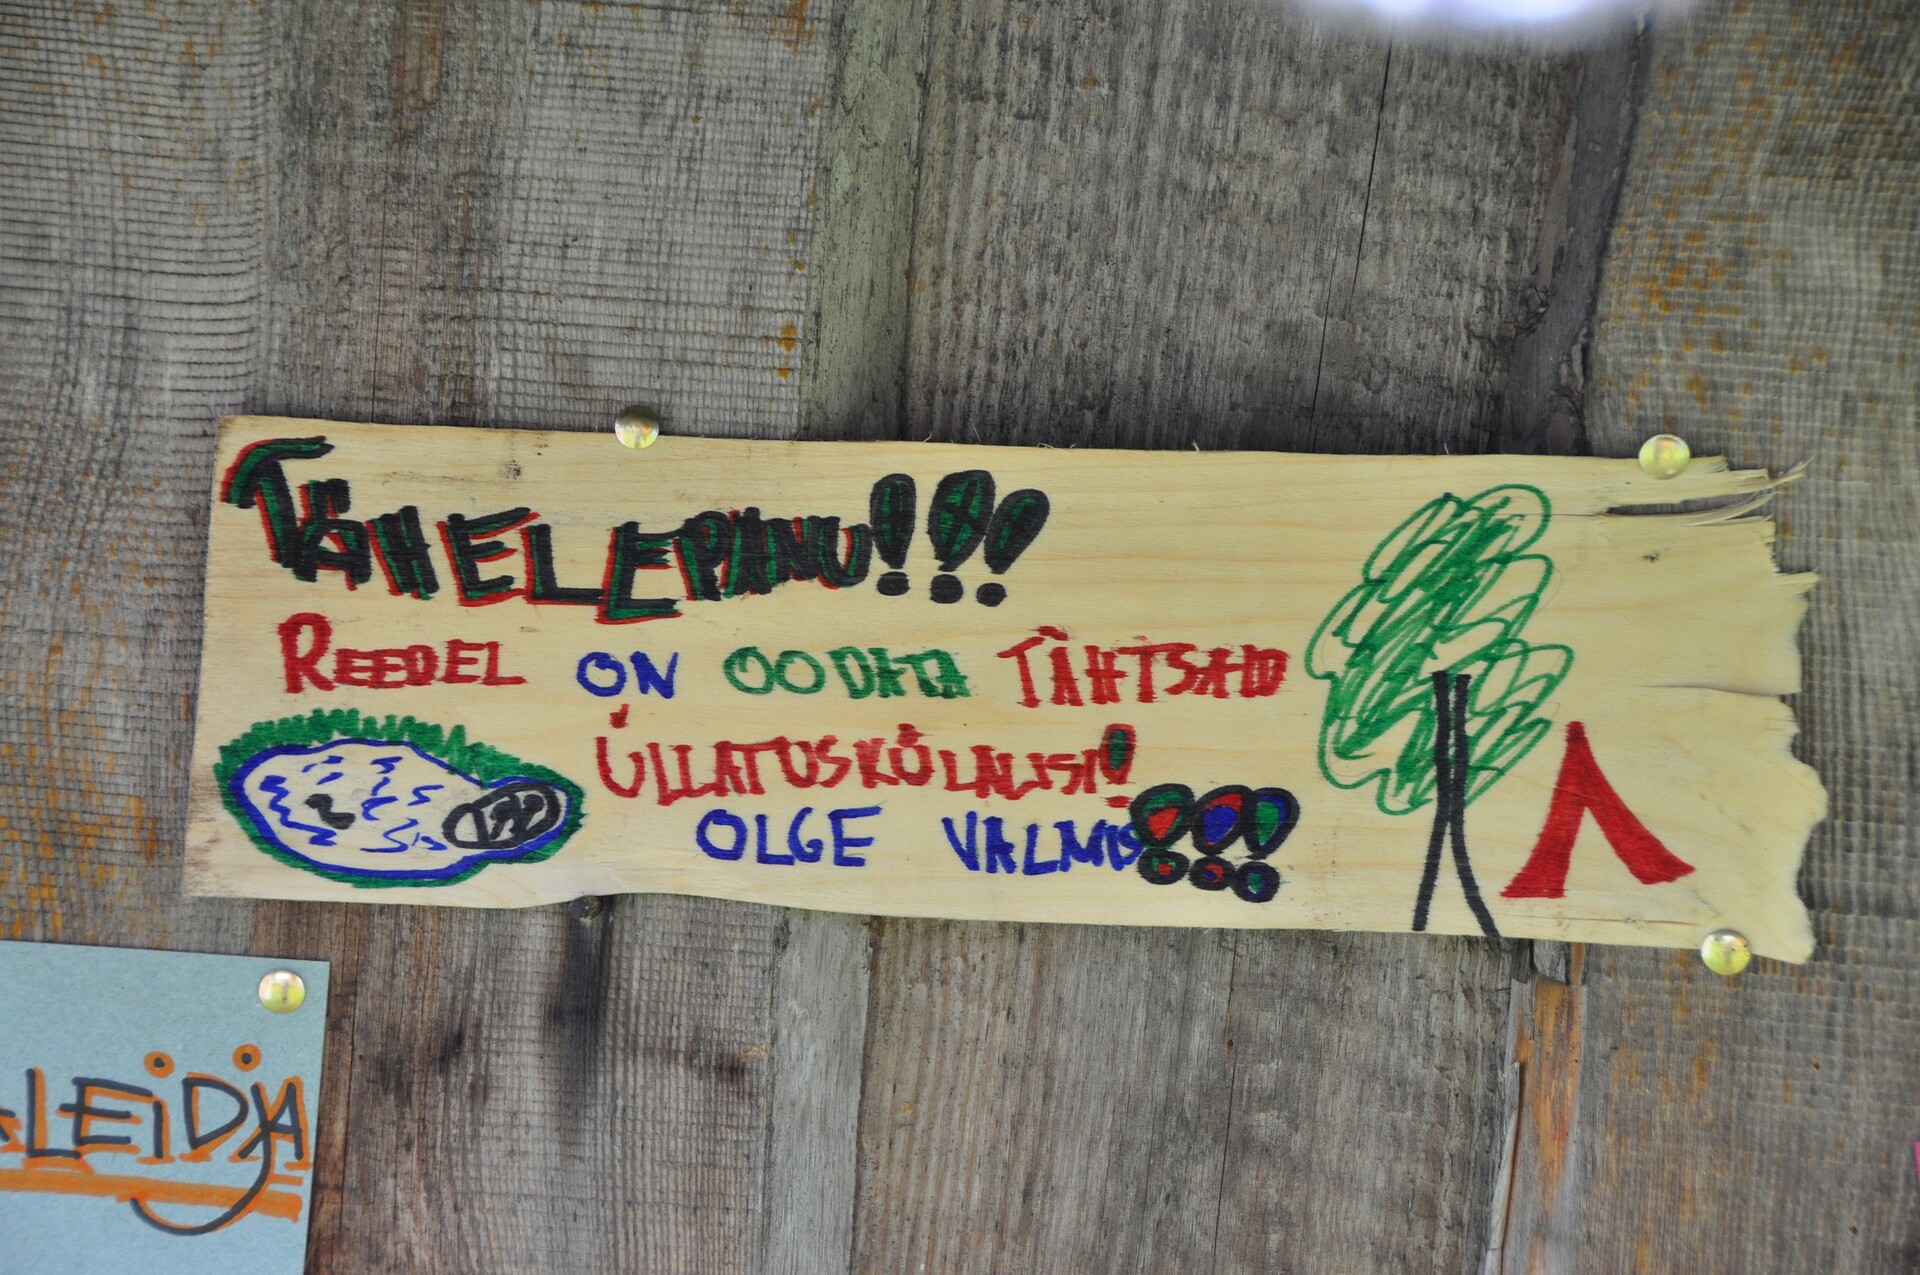 TÄHELEPANU!!!
REEDEL ON OODATA TÄHTSAID
ÜLLATUSKÜLALISI!
OLGE VALMIS!!!
LEIDJA